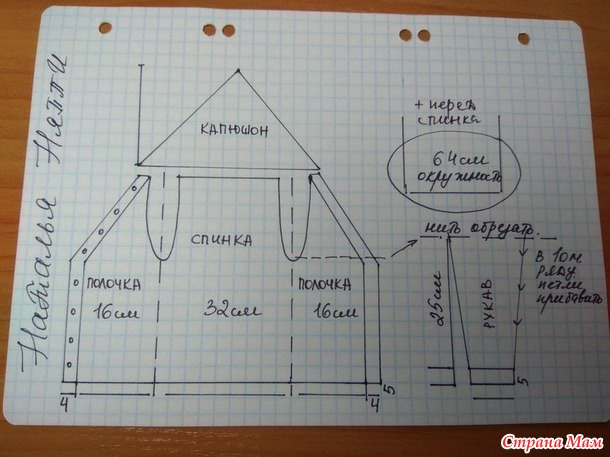 Наталья Няппи
КАПЮШОН
СПИНКА
ПОЛОЧКА
16см
32см
ПОЛОЧКА
16см
4
4
5
+ перед
спинка
64см
окружность
нить обрезать.
25см
РУКАВ
5
в 10м
ряду
петли
прибавить
Страна Мам